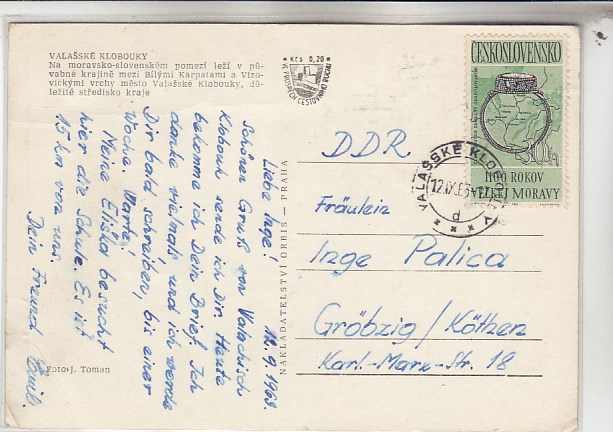 VALAŠSKÉ KLOBOUKY
Na moravsko-slovenském pomezí leží v pů-
vabné krajině mezi Bílými Karpatami a Vizo-
vickými vrchy město Valašské Klobouky, dů-
ležité středisko kraje
Kčs 0,20
VE PROSPĚCH CESTOVNÍHO RUCHU
ČESKOSLOVENSKO
30h
1100 ROKOV
VEĽKEJ MORAVY
VALAŠSKÉ KLOBOUKY
12.IX.63
d
12.9.1963.
Liebe Inge!
Schönen Gruß von Valachisch
Klobouk sende ich Dir. Heute
bekomme ich Dein Brief. Ich
danke vielmals und ich werde
Dir bald schreiben, bis einer
Woche. Warte!
Meine Eliška besucht
hier die Schule. Es ist
15 km von uns.
Dein Freund Emil.
Foto J. Toman
NAKLADATELSTVÍ ORBIS — PRAHA
DDR.
Fräulein
Inge Palica
Gröbzig / Köthen
Karl-Marx-Str. 18